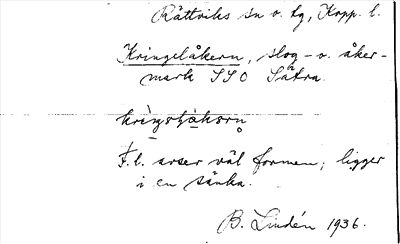 Rättviks sn o. tg, Kopp. l.
Kringelåkern, slog- o. åker-
mark SSO Sätra.
kriŋsʈjɑksrn
F. l. avser väl formen; ligger
i en sänka.
B. Lindén 1936.